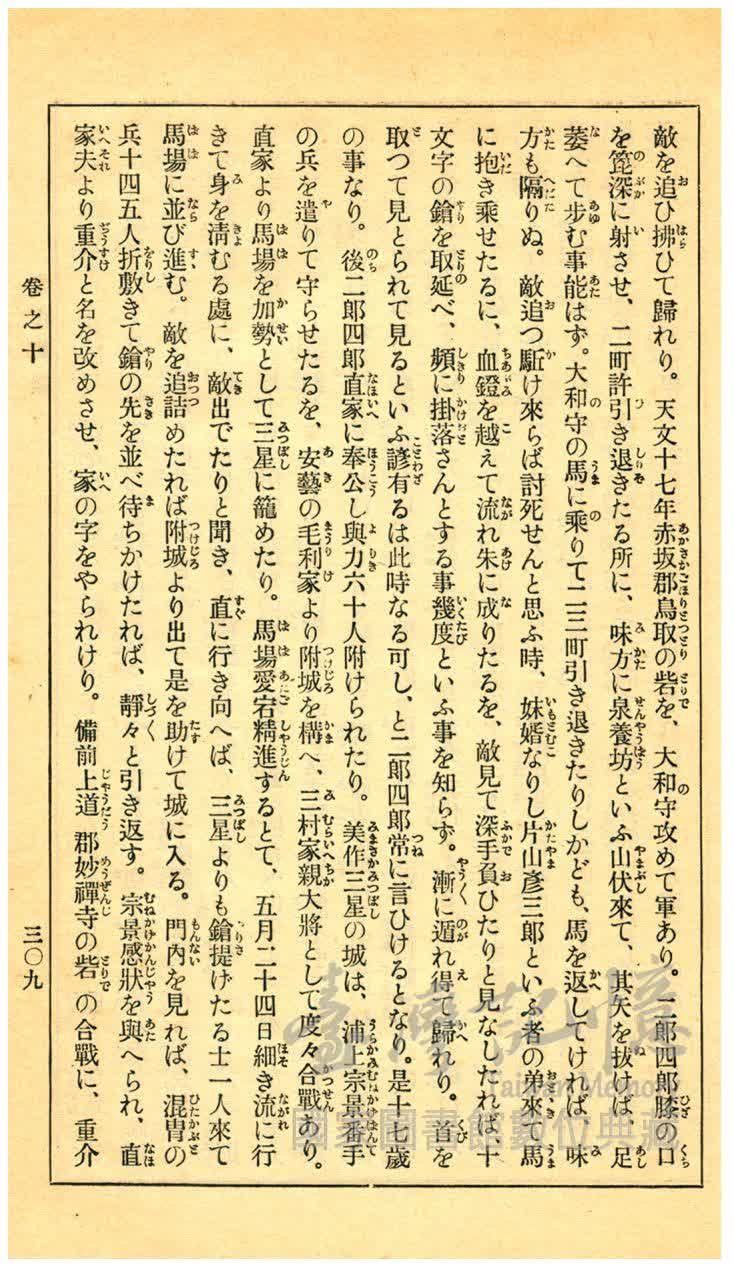 敵を追ひ拂ひて歸れり。天文十七年赤坂郡鳥取の砦を、大和守攻めて軍あり。二郎四郎膝の口
を篦深に射させ、二町許引き退きたる所に、味方に泉養坊といふ山伏來て、其矢を拔けば、足
萎へて歩む事能はず。大和守の馬に乘りて二三町引き退きたりしかども、馬を返してければ、味
方も隔りぬ。敵追つ駈け來らば討死せんと思ふ時、妹婿なりし片山彥三郎といふ者の弟來て馬
に抱き乘せたるに、血鐙を越えて流れ朱に成りたるを、敵見て深手負ひたりと見なしたれば、十
文字の鎗を取延べ、頻に掛落さんとする事幾度といふ事を知らず。漸に遁れ得て歸れり。首を
取つて見とられて見るといふ諺有るは此時なる可し、と二郎四郎常に言ひけるとなり。是十七歲
の事なり。後二郎四郎直家に奉公し與力六十人附けられたり。美作三星の城は、浦上宗景番手
の兵を遣りて守らせたるを、安藝の毛利家より附城を構へ、三村家親大將として度々合戰あり。
直家より馬場を加勢として三星に籠めたり。馬場愛宕精進するとて、五月二十四日細き流に行
きて身を淸むる處に、敵出でたりと聞き、直に行き向へば、三星よりも鎗提げたる士一人來て
馬場に並び進む。敵を追詰めたれば附城より出て是を助けて城に入る。門內を見れば、混冑の
兵十四五人折敷きて鎗の先を並べ待ちかけたれば、靜々と引き返す。宗景感狀を與へられ、直
家夫より重介と名を改めさせ、家の字をやられけり。備前上道郡妙禪寺の砦の合戰に、重介
卷之十
三〇九
臺灣記憶
Taiwan Memory
國家圖書館數位典藏